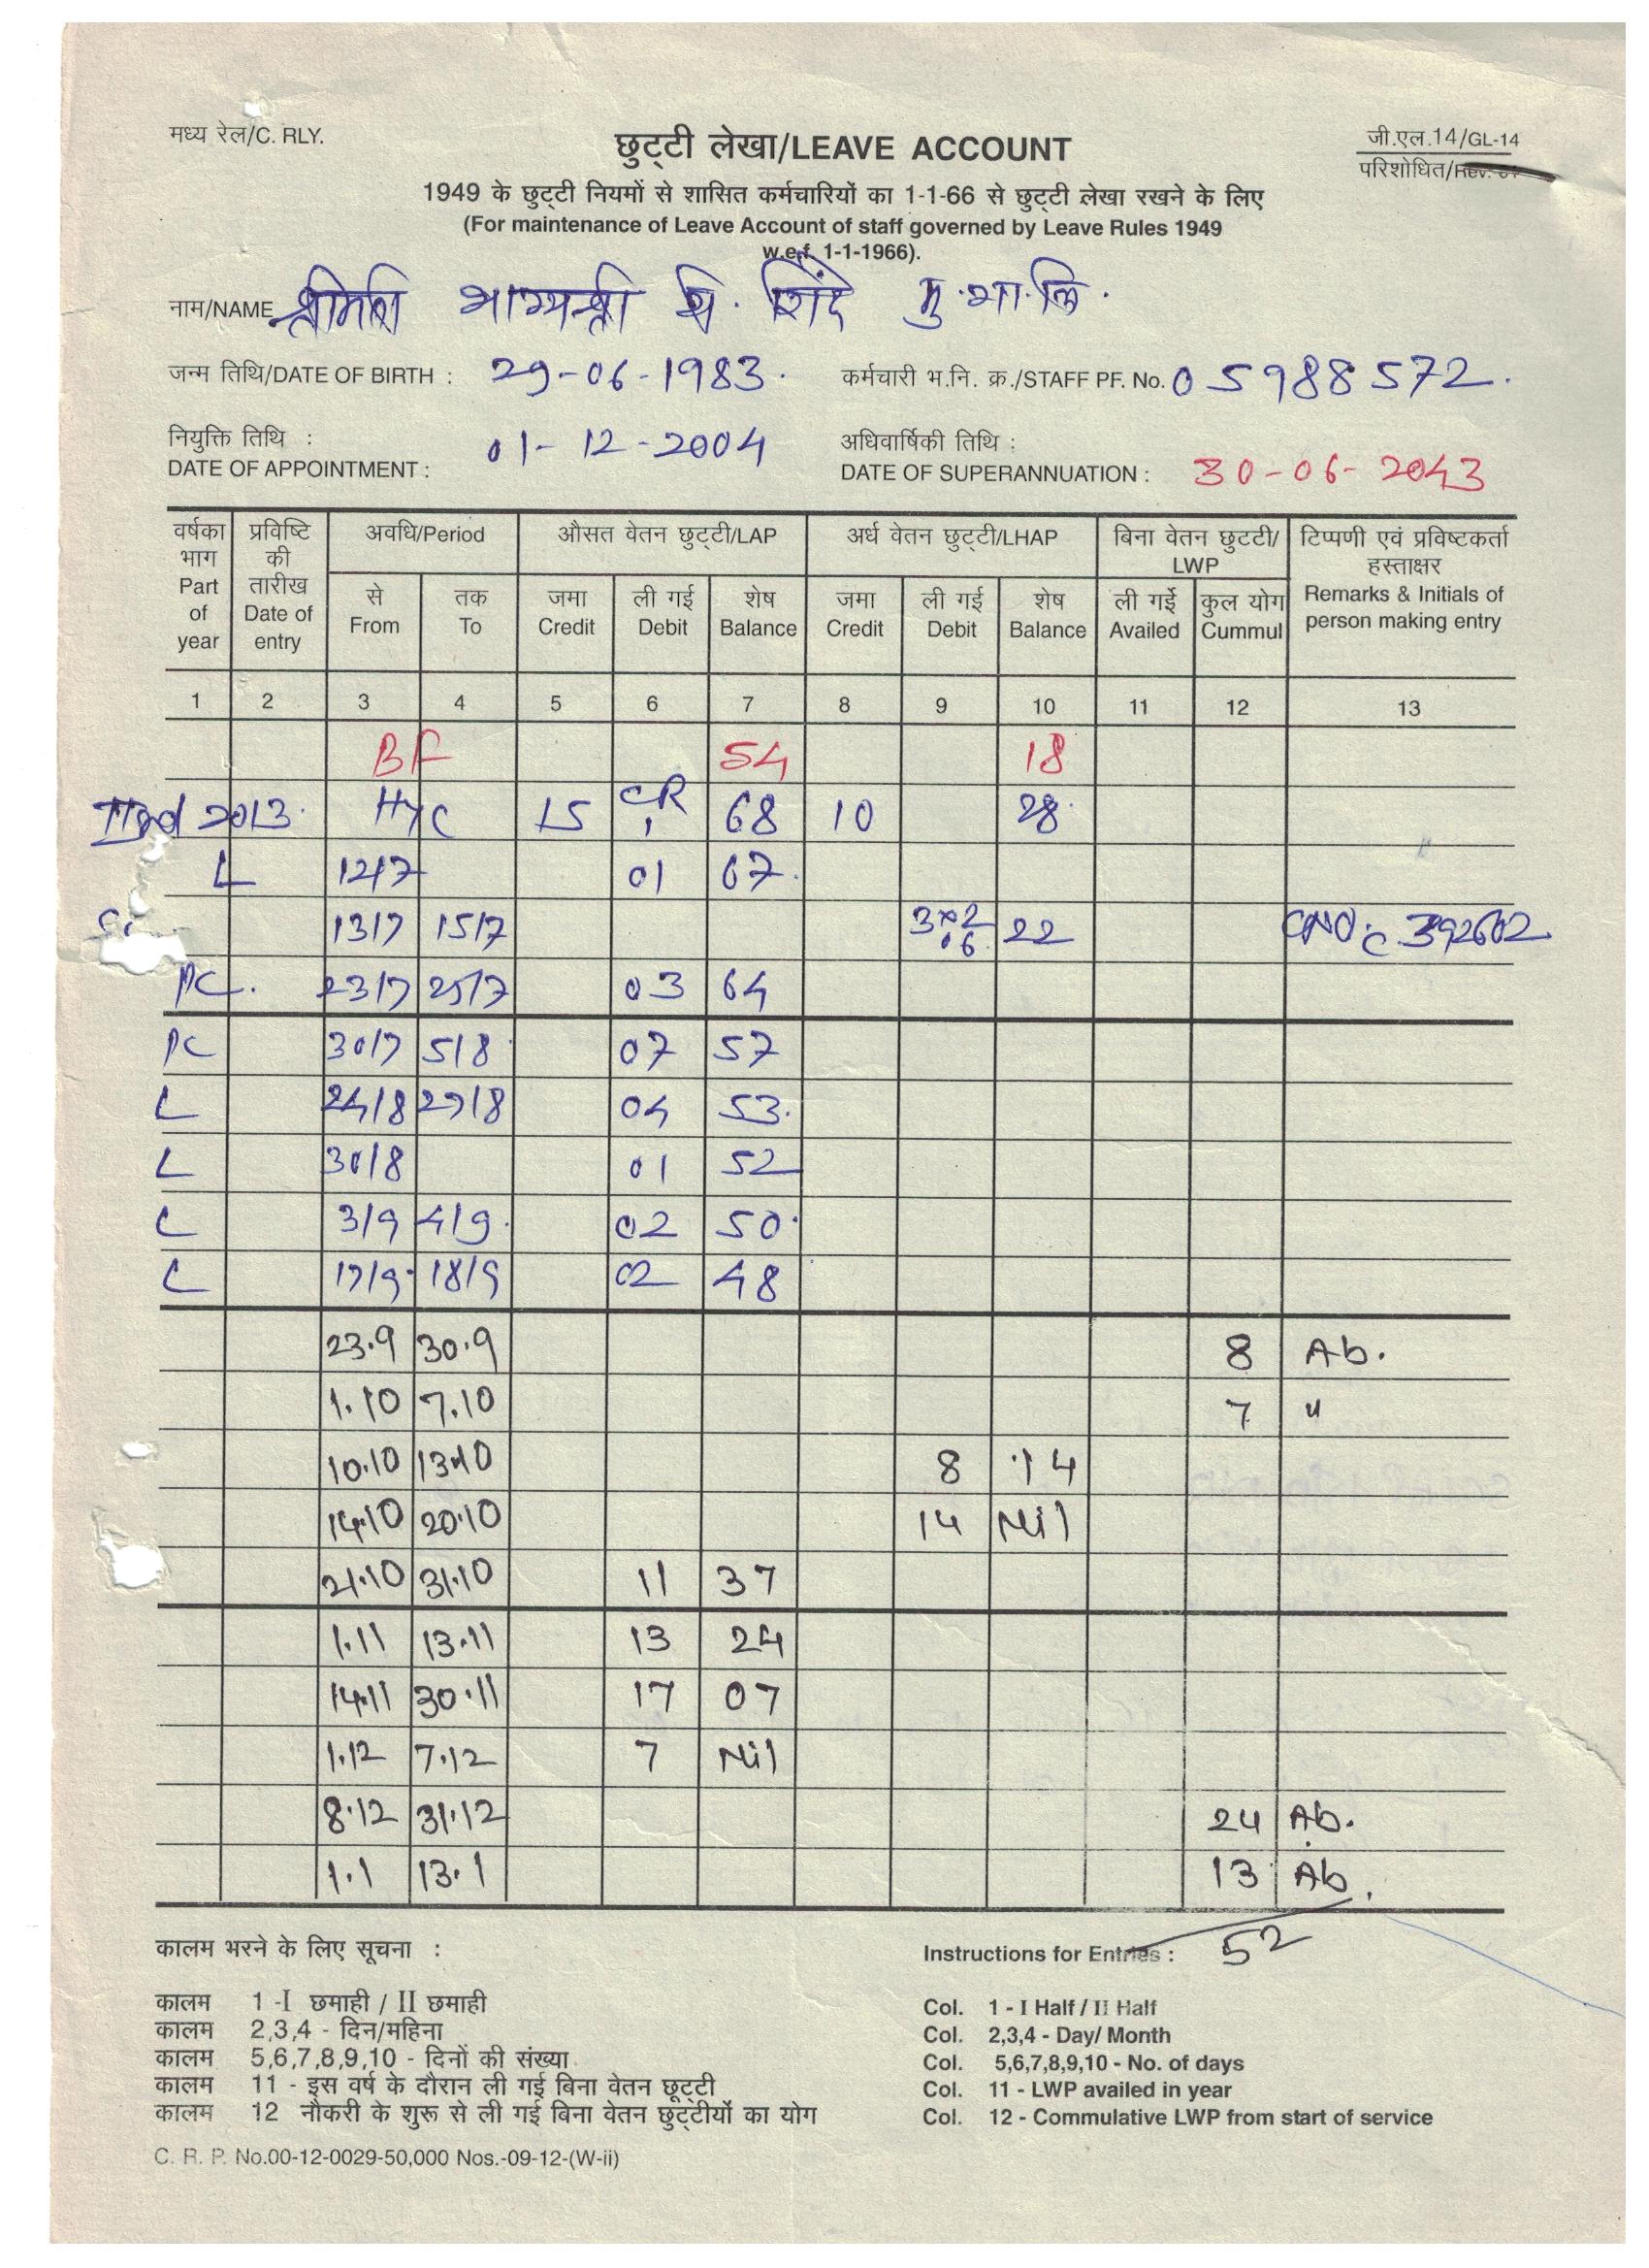 मध्य रेल/C. RLY.
छुट्टी लेखा/LEAVE ACCOUNT
जी.एल.14/GL-14
परिशोधित/Rev. 01
1949 के छुट्टी नियमों से शासित कर्मचारियों का 1-1-66 से छुट्टी लेखा रखने के लिए
(For maintenance of Leave Account of staff governed by Leave Rules 1949
w.e.f. 1-1-1966).
नाम/NAME श्रीमति भाग्यश्री शिंदे मु.भा.लि.
जन्म तिथि/DATE OF BIRTH : 29-06-1983. कर्मचारी भ.नि. क्र./STAFF PF. No. 05988572.
नियुक्ति तिथि : 01-12-2004 अधिवार्षिकी तिथि :
DATE OF APPOINTMENT : DATE OF SUPERANNUATION : 30-06-2043
वर्षका भाग Part of year प्रविष्टि की तारीख Date of entry अवधि/Period औसत वेतन छुट्टी/LAP अर्ध वेतन छुट्टी/LHAP बिना वेतन छुटटी/LWP टिप्पणी एवं प्रविष्टकर्ता हस्ताक्षर Remarks & Initials of person making entry
से From तक To जमा Credit ली गई Debit शेष Balance जमा Credit ली गई Debit शेष Balance ली गईे Availed कुल योग Cummul
1 2 3 4 5 6 7 8 9 10 11 12 13
BF 54 18
IInd 2013. H/C 15 CR 1 68 10 28
L 12/7 01 67.
13/7 15/7 3x2 06 22 392602
PC. 23/7 25/7 03 64
PC 30/7 5/8 07 57
L 24/8 27/8 04 53.
L 30/8 01 52
C 3/9 4/9. 02 50.
C 17/9. 18/9 02 48
23.9 30.9 8 Ab.
1.10 7.10 7 "
10.10 13.10 8 14
14.10 20.10 14 Nil
21.10 31.10 11 37
1.11 13.11 13 24
14.11 30.11 17 07
1.12 7.12 7 Nil
8.12 31.12 24 Ab.
1.1 13.1 13 Ab.
52
कालम भरने के लिए सूचना :
कालम 1 -I छमाही / II छमाही
कालम 2,3,4 - दिन/महिना
कालम 5,6,7,8,9,10 - दिनों की संख्या
कालम 11 - इस वर्ष के दौरान ली गई बिना वेतन छूट्टी
कालम 12 नौकरी के शुरू से ली गई बिना वेतन छुट्टीयों का योग
Instructions for Entries :
Col. 1 - I Half / II Half
Col. 2,3,4 - Day/ Month
Col. 5,6,7,8,9,10 - No. of days
Col. 11 - LWP availed in year
Col. 12 - Commulative LWP from start of service
C. R. P. No.00-12-0029-50,000 Nos.-09-12-(W-ii)